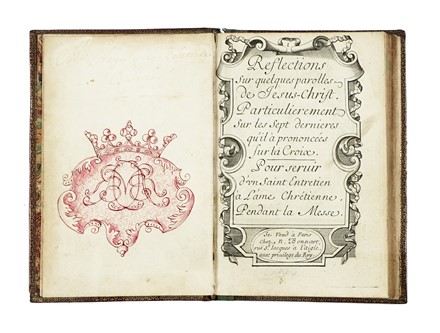 Reflections
Sur quelques parolles
de Jesus-Christ.
Particulierement
Sur les Sept dernieres
qu'il à prononcées
sur la Croix.
Pour servir
d'vn Saint Entretien
a L'ame Chrétienne,
Pendant la Messe.
Se Vend à Paris
Chez, N. Bonnart,
rüe St. Iacques à l'aigle,
avec privilege du Roy.